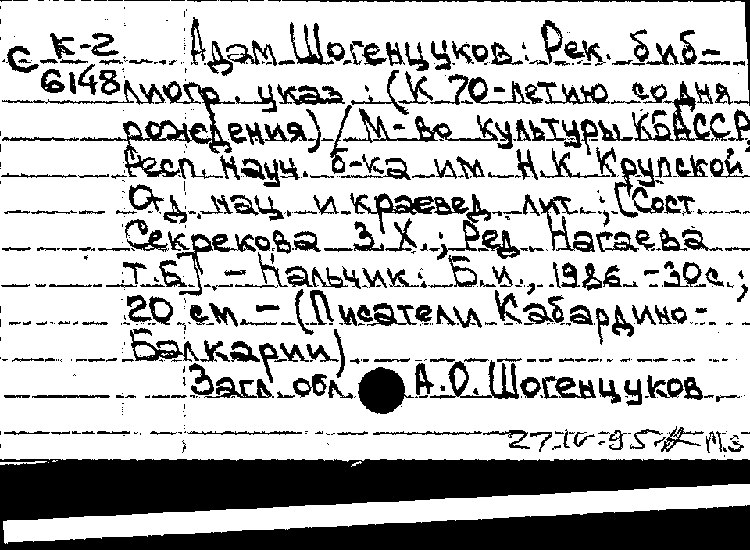 С К-2 Адам Шогенцуков: Рек. биб-
6148 лиогр. указ.: (К 70-летию со дня
рождения) / М-во культуры КБАССР,
Респ. науч. б-ка им. Н.К. Крупской
Отд. нац. и краевед. лит.; [Сост.
Секрекова З.Х.; Ред. Нагаева
Т.Б.]. – Нальчик: Б.и., 1986. – 30с.;
20 см. – (Писатели Кабардино-
Балкарии)
Загл. обл. А.О. Шогенцуков.
27.IV-95 М.З